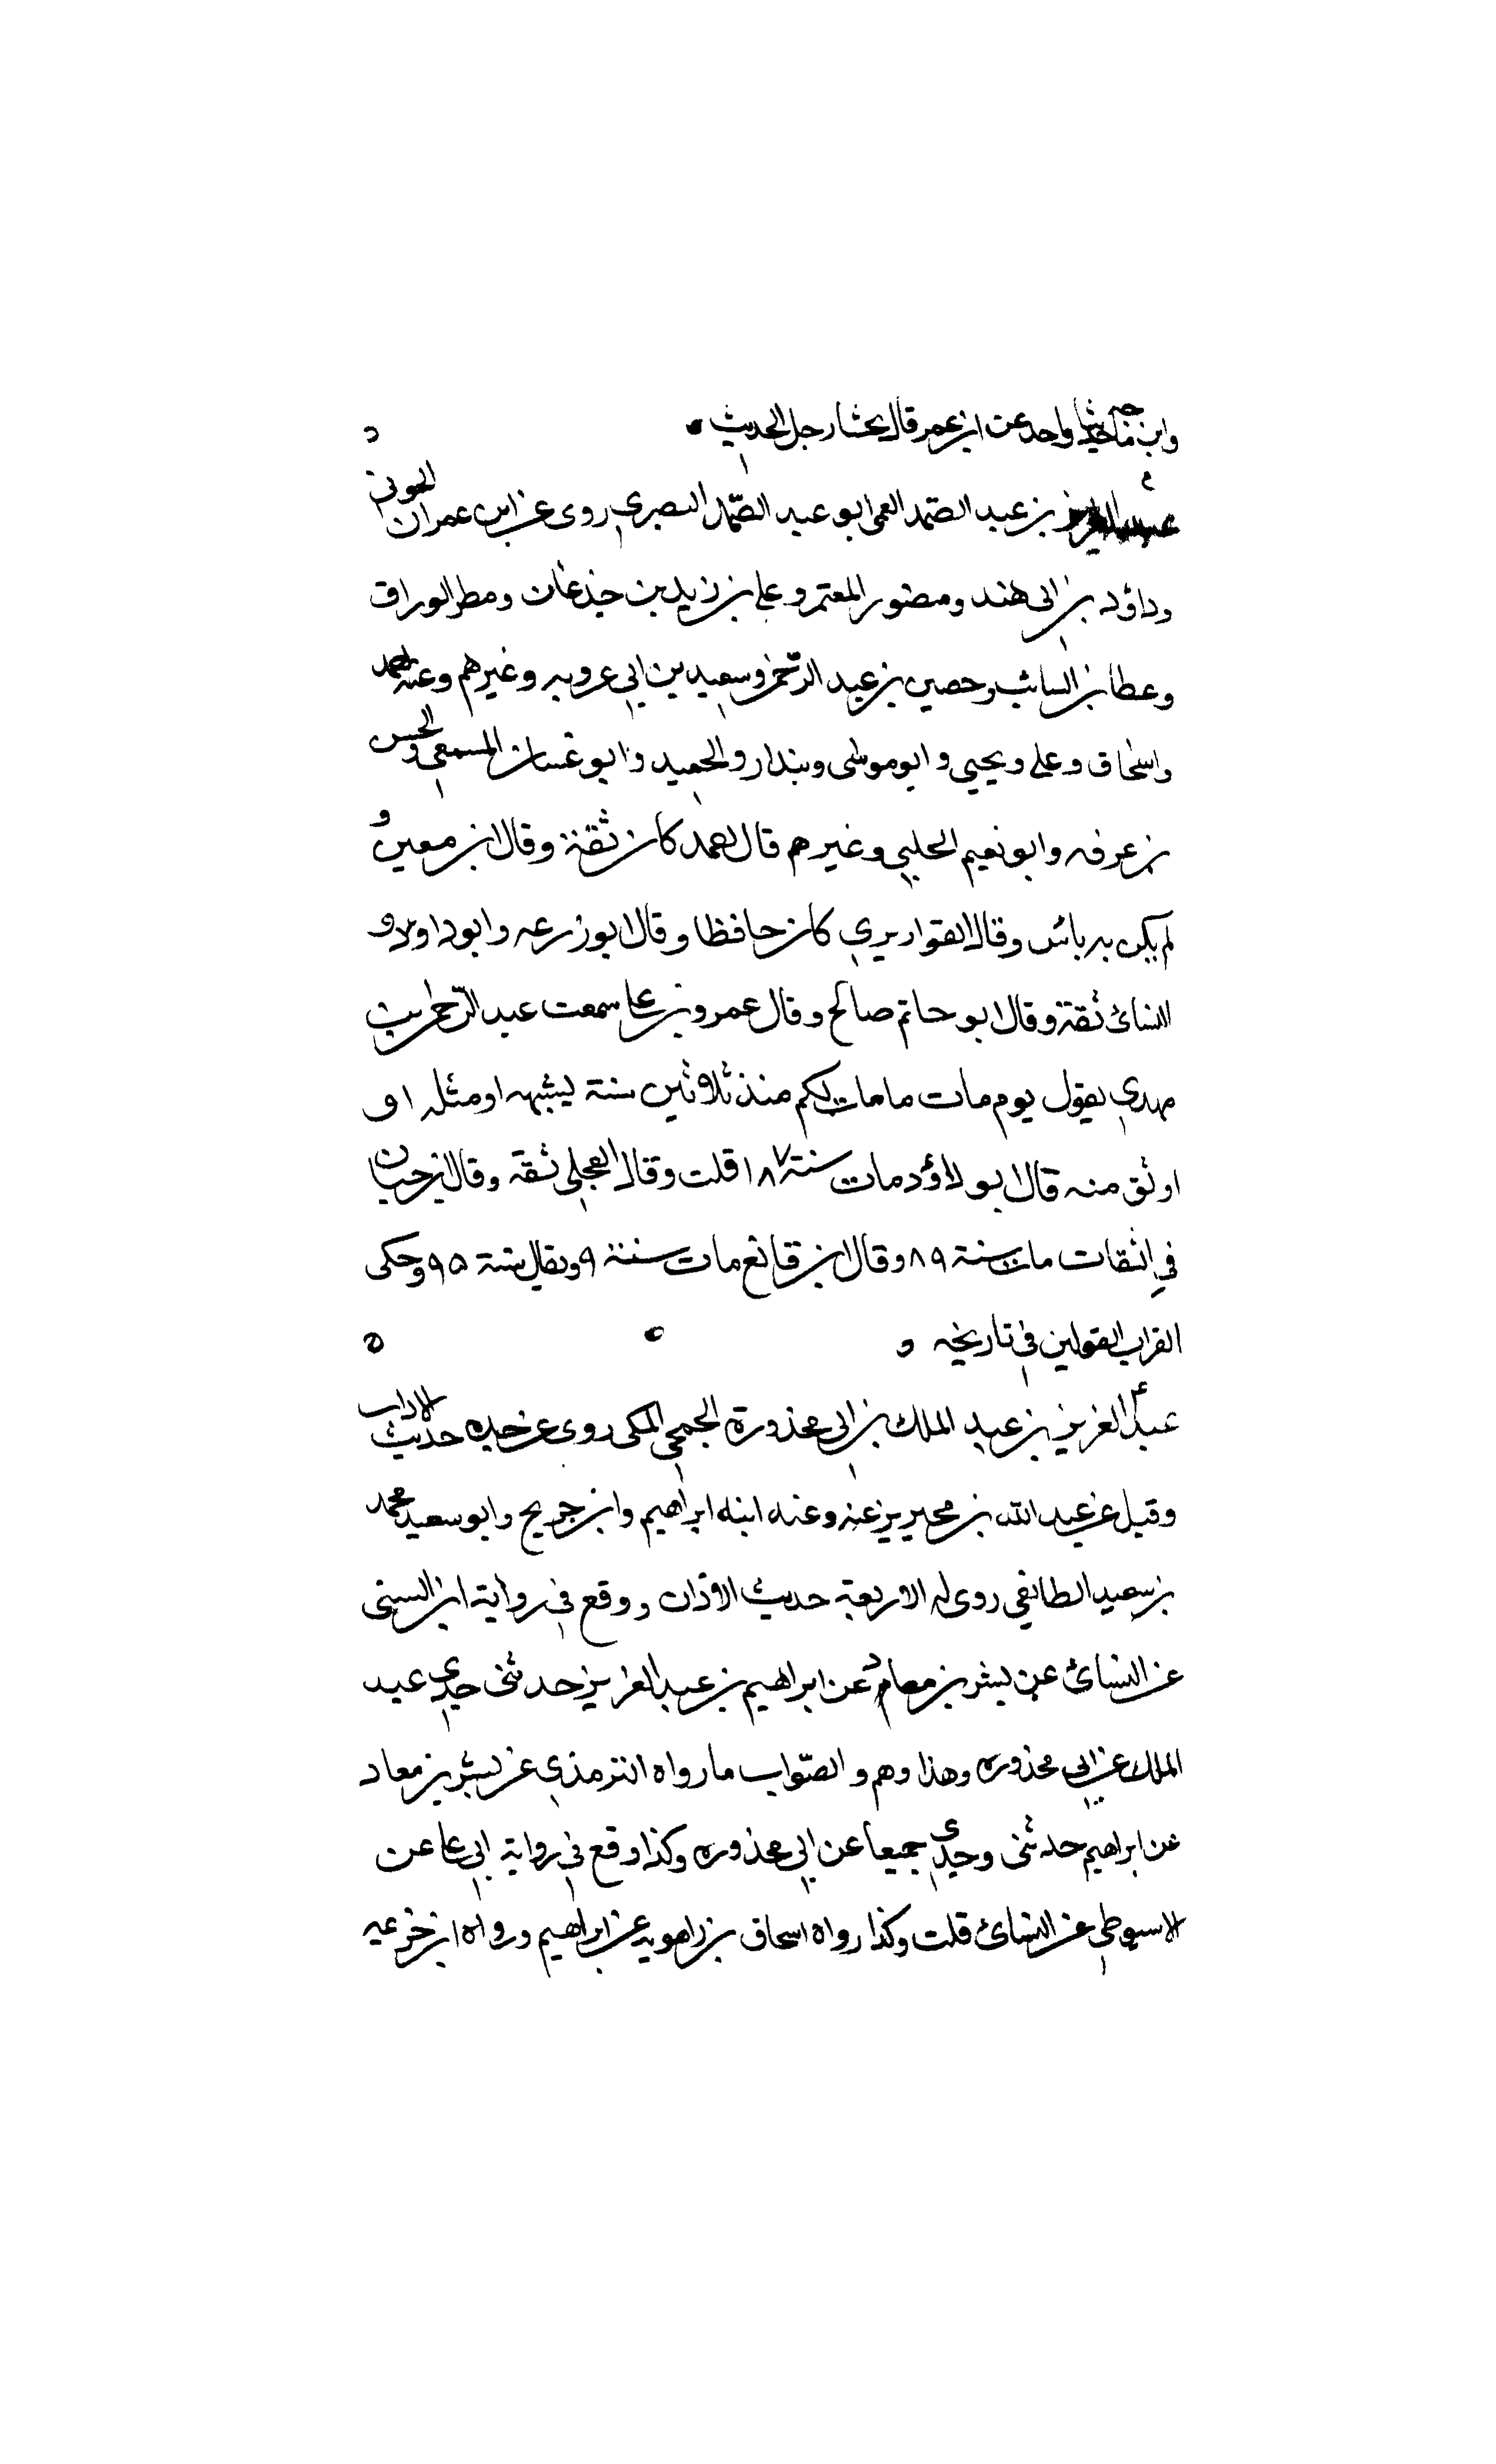 وابن ماجه حديثا واحدا عن ابن عمر قال تجشا رجل الحديث
عبد العزيز بن عبد الصمد العمي ابو عبد الصمد البصري روى عن ابي عمران الجوني
وداود بن ابي هند ومنصور المعتمر وعلي بن زيد بن جذعان ومطر الوراق
وعطا بن السائب وحصين بن عبد الرحمن وسعيد بن ابي عروبه وغيرهم وعنه احمد
واسحاق وعلي ويحيى وابو موسى وبندار والحميد وابو غسان المسمعي والحسن
بن عرفه وابو نعيم الحلبي وغيرهم قال احمد كان ثقة وقال ابن معين و
لم يكن به باس وقال القواريري كان حافظا وقال ابو زرعه وابو داود و
النسائ ثقة وقال ابو حاتم صالح وقال عمرو بن علي سمعت عبد الرحمن بن
مهدي يقول يوم مات ما مات لكم منذ ثلاثين سنة يشبهه او مثله او
اوثق منه قال ابو داود مات سنة ١٨٧ قلت وقال العجلي ثقة وقال ابن حبان
في الثقات مات سنة ٨٩ وقال ابن قانع مات سنة ٩ ويقال سنة ٩٥ وحكى
القراب القولين في تاريخه
عبد العزيز بن عبد الملك بن ابي محذورة الجمحي المكي روى عن جده حديث الاذان
وقيل عن عبد الله بن محيريز عنه وعنه ابنه ابراهيم وابن جريح وابو سعيد محمد
بن سعيد الطائفي روى له الاربعة حديث الاذان ووقع في رواية ابن السني
عن النسائ عن بشر بن معاد عن ابراهيم بن عبد العزيز حدثني جدي عبد
الملك عن ابي محذوره وهذا وهم والصواب ما رواه الترمذي عن بشر بن معاد
عن ابراهيم حدثني وجدي جميعا عن ابي محذوره وكذا وقع في رواية ابي علي عن
الاسيوطي عن النسائ قلت وكذا رواه اسحاق بن راهويه عن ابراهيم ورواه ابن خزيمه